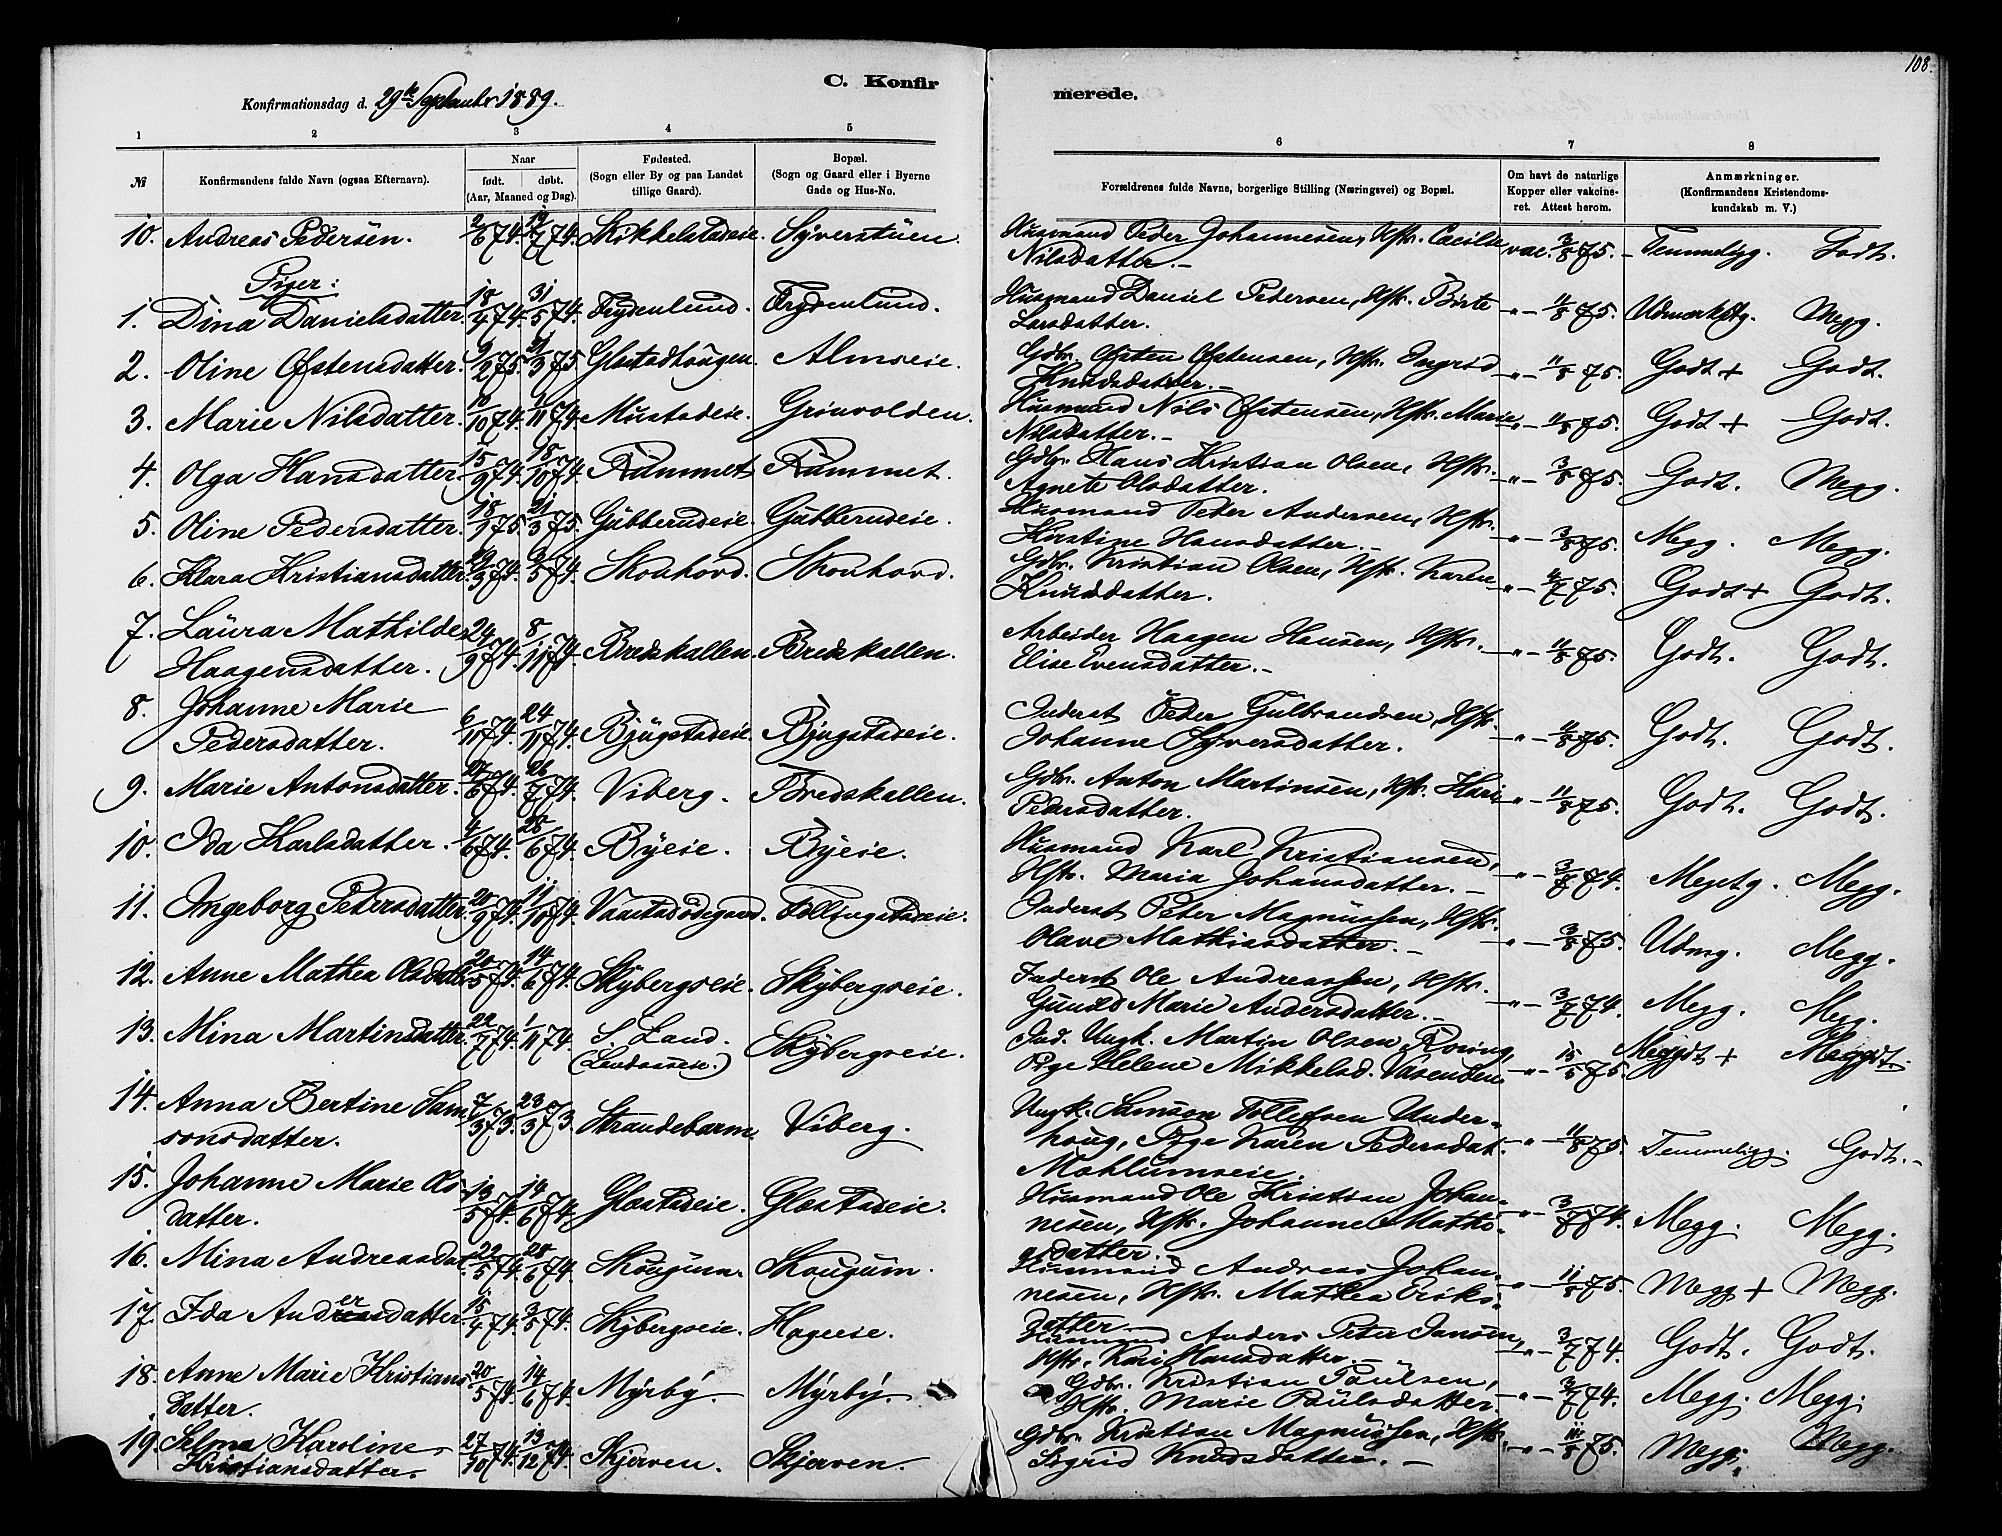 108.
C. Konfirmerede.
Konfirmationsdag d. 29de September 1889.
1 2 3 4 5 6 7 8
№ Konfirmandens fulde Navn (ogsaa Efternavn). Naar født. døbt. (Aar, Maaned og Dag). Fødested. (Sogn eller By og paa Landet tillige Gaard). Bopæl. (Sogn og Gaard eller i Byerne Gade og Hus-No. Forældrenes fulde Navne, borgerlige Stilling (Næringsvei) og Bopæl. Om havt de naturlige Kopper eller vakcineret. Attest herom. Anmærkninger. (Konfirmandens Kristendomskundskab m. V.)
10. Andreas Pedersen. 2/6 74. 12/7 74. Mikkelstadeie. Syverstuen. Husmand Peder Johannesen, Hstr. Cecilie Nilsdatter. vac. 3/8 75. Temmeligg. Godt.
Piger:
1. Dina Danielsdatter. 18/4 74. 31/5 74. Frydenlund. Frydenlund. Husmand Daniel Pedersen, Hstr. Birte Larsdatter. -"- 11/8 75. Udmærketg. Megg.
2. Oline Østensdatter. 9/2 75. 21/3 75. Glæstadhaugen. Almseie. Gdbr. Østen Østensen, Hstr. Ingrid Knudsdatter. -"- 11/8 75. Godt + Godt.
3. Marie Nilsdatter. 10/10 74. 1/11 74. Mustadeie. Grinvolden. Husmand Nils Østensen, Hstr. Marie Nilsdatter. -"- 11/8 75. Godt + Godt.
4. Olga Hansdatter. 15/9 74. 18/10 74. Rummet. Rummet. Gdbr. Hans Kristian Olsen, Hstr. Agnete Olsdatter. -"- 3/8 75. Godt. Megg.
5. Oline Pedersdatter. 18/1 75. 21/3 75. Gubberudeie. Gubberudeie. Husmand Peder Andersen, Hstr. Kirstine Hansdatter. -"- 3/8 75. Megg. Megg.
6. Klara Kristiansdatter. 29/3 74. 3/5 74. Skonhovd. Skonhovd. Gdbr. Kristian Olsen, Hstr. Karen Knudsdatter. -"- 75. Godt + Godt.
7. Laura Mathilde Haagensdatter. 29/9 74. 8/11 74. Bredskallen. Bredskallen. Arbeider Haagen Hansen, Hstr. Elise Evensdatter. -"- 11/8 75. Godt. Godt.
8. Johanne Marie Pedersdatter. 6/11 74. 24/11 74. Bjugstadeie. Bjugstadeie. Inderst Peder Gulbrandsen, Hstr. Johanne Syversdatter. -"- 11/8 75. Godt. Godt.
9. Marie Antonsdatter. 27/6 74. 26/7 74. Viberg. Bredskallen. Gdbr. Anton Martinsen, Hstr. Kari Pedersdatter. -"- 11/8 75. Godt. Godt.
10. Ida Karlsdatter. 4/6 74. 28/6 74. Byeie. Byeie. Husmand Karl Kristiansen, Hstr. Maria Johansdatter. -"- 3/8 74. Megetg. Megg.
11. Ingeborg Pedersdatter. 20/9 74. 11/10 74. Vaastadødegaard. Folljugstadeie. Inderst Peter Magnussen, Hstr. Olave Mathiasdatter. -"- 3/8 75. Udmg. Megg.
12. Anne Mathea Olsdatter. 20/5 74. 14/6 74. Skybergseie. Skybergseie. Inderst Ole Andreassen, Hstr. Gunild Marie Andersdatter. -"- 3/7 74. Megg. Megg.
13. Mina Martinsdatter. 22/7 74. 1/11 74. S. Land. (Landaaseie.) Skybergseie. Ind. Ungk. Martin Olsen Rosing, Pige Helene Mikkelsd. Vasenden. -"- 15/5 75.
14. Anna Bertine Samsonsdatter. 7/3 73. 23/3 73. Strandebarm. Viberg. Ungk. Samson Tollefsen Underhoug, Pige Karen Pedersdat. Mohlumseie. -"- 11/8 75. Temmeligg. Godt.
15. Johanne Marie Olsdatter. 13/5 74. 14/6 74. Glæstadeie. Glæstadeie. Husmand Ole Kristian Johannesen, Hstr. Johanne Mathiasdatter. -"- 3/8 74. Megg. Megg.
16. Mina Andreasdat. 22/5 74. 28/6 74. Skougum. Skougum. Husmand Andreas Johannesen, Hstr. Mathea Eriksdatter. -"- 11/8 75. Megg + Megg.
17. Ida Andersdatter. 15/4 74. 3/5 74. Skybergseie. Hageeie. Husmand Anders Peter Jansen, Hstr. Kari Hansdatter. -"- 3/7 74. Godt. Godt.
18. Anne Marie Kristiansdatter. 20/5 74. 14/6 74. Myrby. Myrby. Gdbr. Kristian Paulsen, Hstr. Marie Paulsdatter. -"- 3/7 74. Megg. Megg.
19. Selma Karoline Kristiansdatter. 27/10 74. 13/12 74. Skjerven. Skjerven. Gdbr. Kristian Magnussen, Hstr. Sigrid Knudsdatter. -"- 75. Megg. Megg.